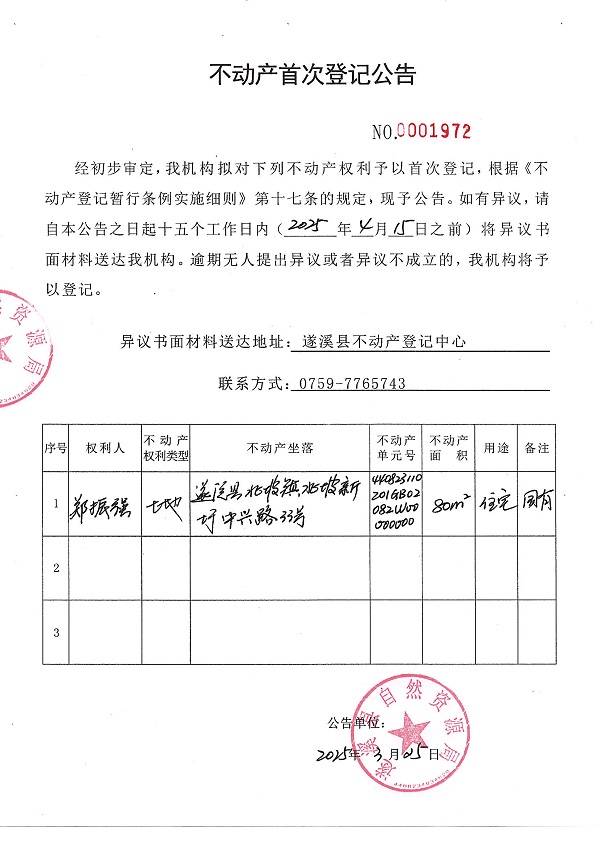 不动产首次登记公告
NO.0001972
经初步审定，我机构拟对下列不动产权利予以首次登记，根据《不
动产登记暂行条例实施细则》第十七条的规定，现予公告。如有异议，请
自本公告之日起十五个工作日内（2025年4月15日之前）将异议书
面材料送达我机构。逾期无人提出异议或者异议不成立的，我机构将予
以登记。
异议书面材料送达地址：遂溪县不动产登记中心
联系方式：0759-7765743
序号 权利人 不动产权利类型 不动产坐落 不动产单元号 不动产面积 用途 备注
1 郑振强 土地 遂溪县北坡镇北坡新圩中兴路33号 440823110201GB02082W00000000 80m² 住宅 国有
2
3
公告单位：
2025年3月25日
遂溪县自然资源局
资源局